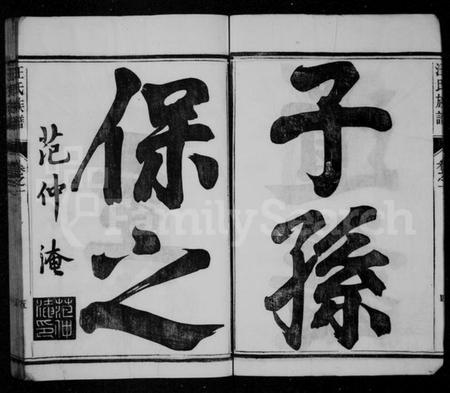 子孫
保之
范仲淹
范仲淹印
汪氏族譜
汪氏族譜
卷之一
FamilySearch